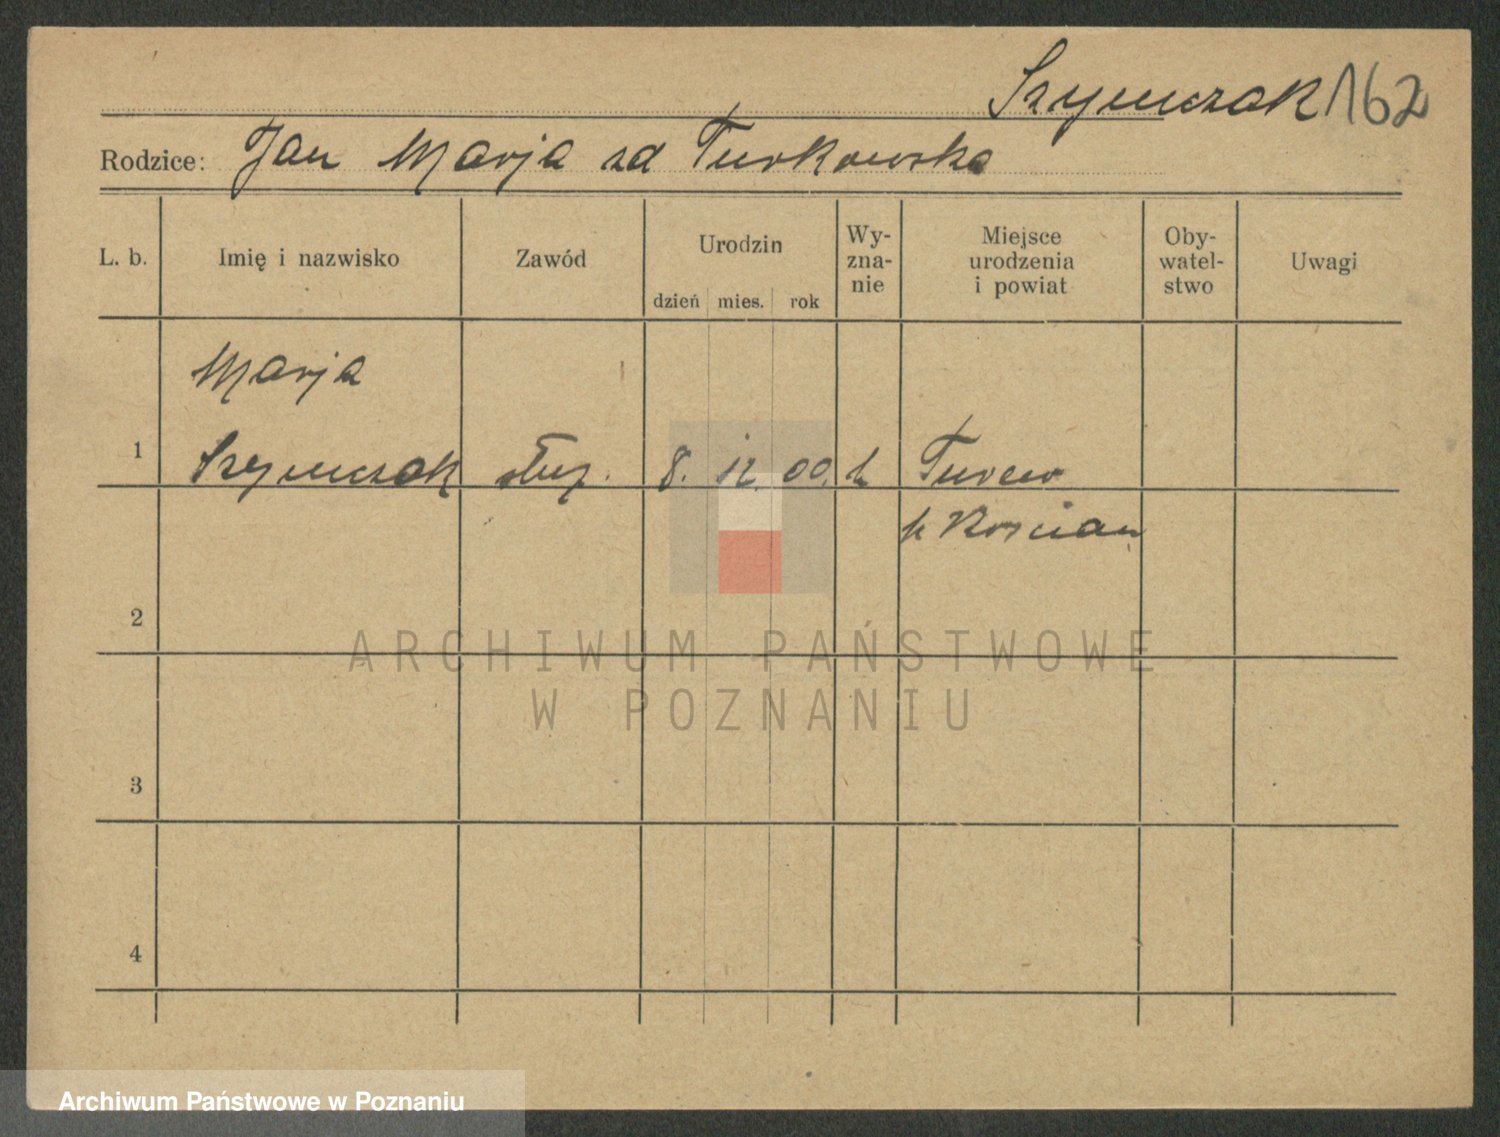 Szymczak 162
Rodzice: Jan Marja zd Turkowska
L. b. Imię i nazwisko Zawód Urodzin dzień mies. rok Wy-zna-nie Miejsce urodzenia i powiat Oby-watel-stwo Uwagi
Marja
1 Szymczak służ. 8. 12. 00. k Turew
p Kościan
2
ARCHIWUM PAŃSTWOWE
W POZNANIU
3
4
Archiwum Państwowe w Poznaniu